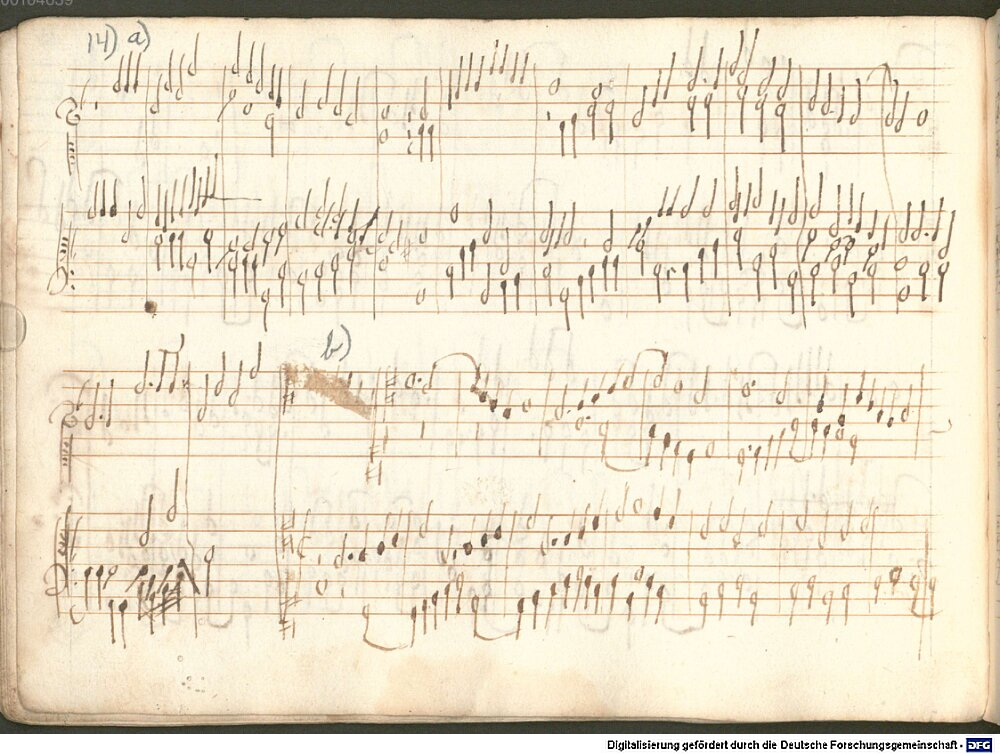 00104639
14) a)
b)
Digitalisierung gefördert durch die Deutsche Forschungsgemeinschaft - DFG